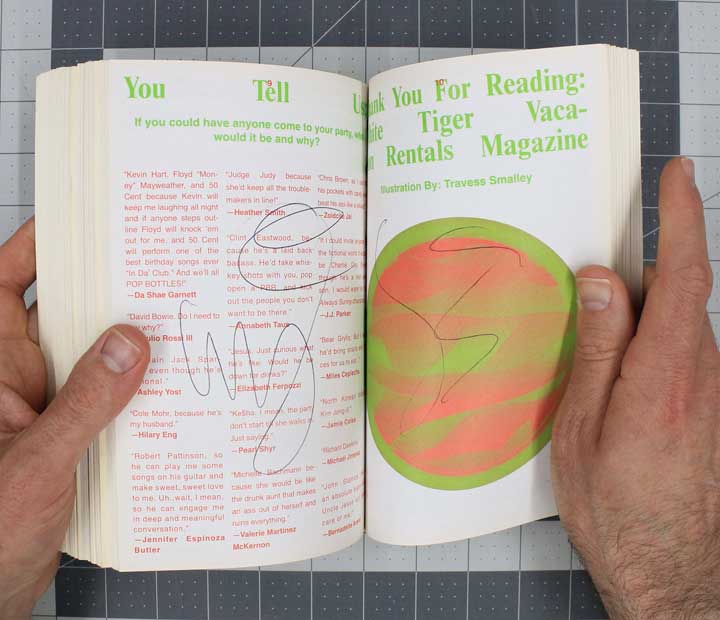 9
You Tell Us
If you could have anyone come to your party,
would it be and why?
"Kevin Hart, Floyd "Mon-
ey" Mayweather, and 50
Cent because Kevin will
keep me laughing all night
and if anyone steps out-
line Floyd will knock 'em
out for me, and 50 Cent
will perform one of the
best birthday songs ever
"In Da' Club." And we'll all
POP BOTTLES!"
—Da Shae Garnett
"David Bowie. Do I need to
why?"
Rossi III
Jack
even though he's
Ashley Yost
"Cole Mohr, because he's
my husband."
—Hilary Eng
"Robert Pattinson, so
he can play me some
songs on his guitar and
make sweet, sweet love
to me. Uh..wait, I mean,
so he can engage me
in deep and meaningful
conversation."
—Jennifer Espinoza
Butler
"Judge Judy because
she'd keep all the trouble-
makers in line!"
—Heather Smith
"Clint Eastwood, be-
cause he's a laid back
badass. He'd take whis-
key shots with you, pop
open a PBR, and kick
out the people you don't
want to be there."
—Annabeth Taus
"Jesus. Just curious what
he's like. Would he be
down for drinks?"
—Elizabeth Ferpozzi
"Ke$ha. I mean, the party
don't start till she walks in.
Just saying."
—Pearl Shyr
"Michelle Bachmann be-
cause she would be like
the drunk aunt that makes
an ass out of herself and
ruins everything."
—Valerie Martinez
McKernon
"Chris Brown, so I can
his pockets with
beat his ass like a
"If I could invite
the fictional
be Charlie
though he's a
son, I would
Always Sunny
—J.J. Parker
"Bear Grylls! But I
he'd bring
ces for us to eat."
—Miles
"North Korean
Kim Jong-il."
—Jamie
"Richard
—Michael
"John Stamos
an absolute
Uncle Jesse
care of me."
—Bernadette
10
You For Reading:
Tiger Vaca-
Rentals Magazine
Illustration By: Travess Smalley